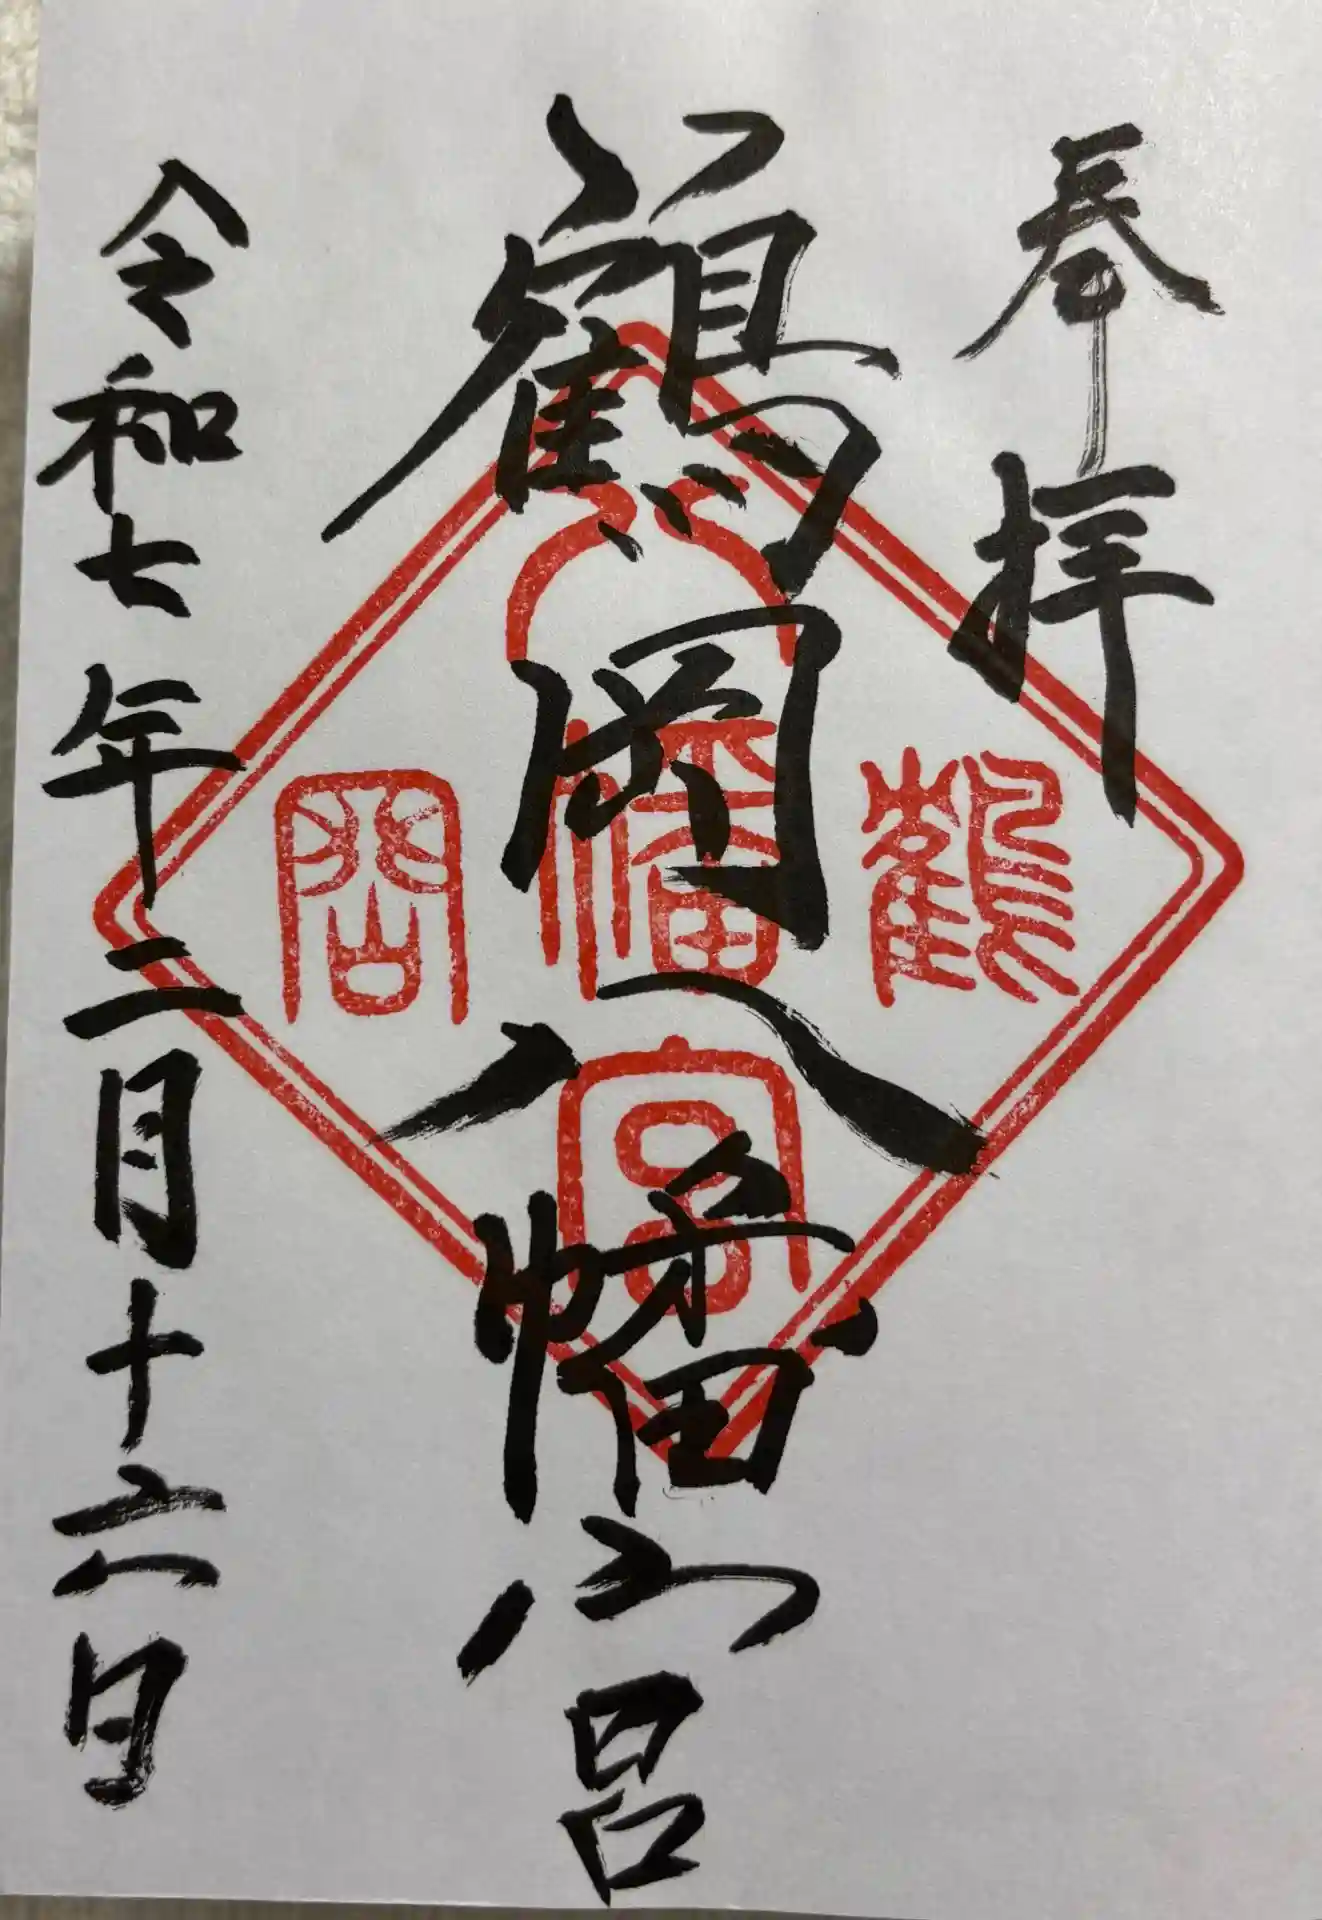 奉拝
鶴岡八幡宮
令和七年二月十六日
八
鶴
幡
岡
宮